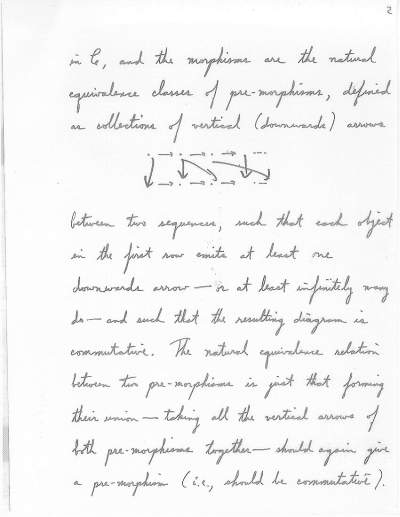 2
in C, and the morphisms are the natural
equivalence classes of pre-morphisms, defined
as collections of vertical (downwards) arrows
between two sequences, such that each object
in the first row emits at least one
downwards arrow — or at least infinitely many
do — and such that the resulting diagram is
commutative. The natural equivalence relation
between two pre-morphisms is just that forming
their union — taking all the vertical arrows of
both pre-morphisms together — should again give
a pre-morphism (i.e., should be commutative).